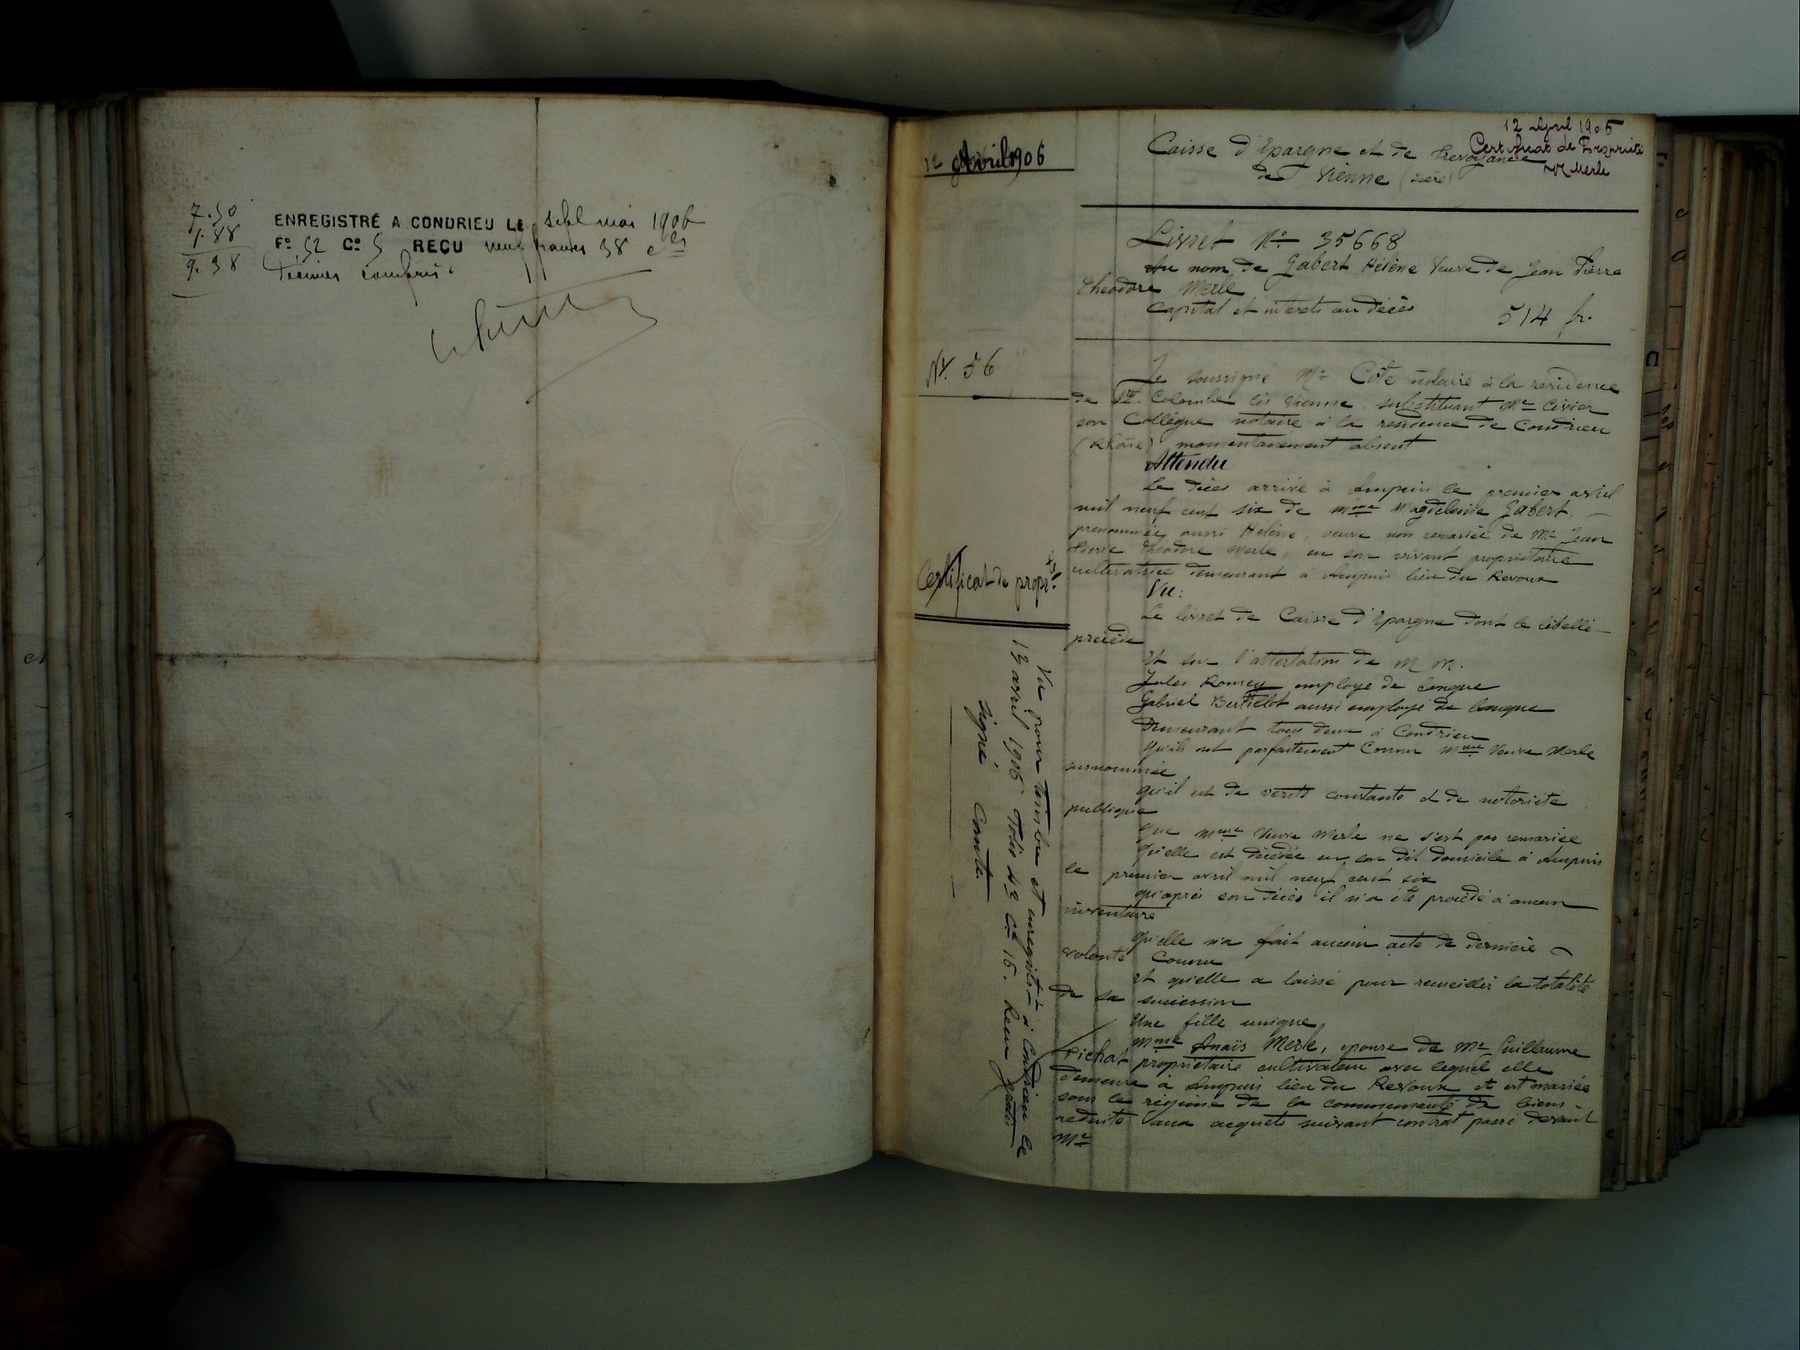 7.50
1.88
9.38
ENREGISTRÉ A CONDRIEU LE sept mai 1906
Fº 52 Cº 5 REÇU neuf francs 38 ces
Décimes compris.
12 Avril 1906
Nº. 56
Certificat de propté.
Vu pour timbre et enregistré à Condrieu le
13 avril 1906 Folio 42 Cse 15. Reçu gratis
signé Comte
12 April 1905
Certificat de Propriété
Vve Merle
Caisse d'Epargne et de Prevoyance
de Vienne (Isère)
Livret Nº 35668
Au nom de Gabert Hélène Veuve de Jean Pierre
Théodore Merle
Capital et intérêts au décès 514 fr.
Je soussigné Me Cote notaire à la résidence
de Ste Colombe lès Vienne, substituant Me
son Collègue notaire à la résidence de Condrieu
(Rhône) momentanément absent
Attendu
Le décès arrivé à Ampuis le premier avril
mil neuf cent six de Mme Magdeleine Gabert
prénommée aussi Hélène, veuve non remariée de Mr Jean
Pierre Théodore Merle, en son vivant propriétaire
cultivatrice demeurant à Ampuis lieu du Revoux
Vu:
Le livret de Caisse d'Epargne dont le libellé
précède
Et sur l'attestation de M M.
Jules Romey employé de banque
Gabriel Berthelot aussi employé de banque
Demeurant tous deux à Condrieu
Qu'ils ont parfaitement Connu Mme Veuve Merle
surnommée
qu'il est de vérité constante et de notoriété
publique
Que Mme Veuve Merle ne s'est pas remariée
Qu'elle est décédée en son dit domicile à Ampuis
le premier avril mil neuf cent six
qu'après son décès il n'a été procédé à aucun
inventaire
Qu'elle n'a fait aucun acte de dernière
volonté Connu
Et qu'elle a laissé pour recueillir la totalité
de sa succession
Une fille unique,
Mme Anaïs Merle, épouse de Mr Guillaume
Pichat propriétaire cultivateur avec lequel elle
demeure à Ampuis lieu du Revoux et est mariée
sous le régime de la communauté de biens
réduite aux acquêts suivant contrat passé devant
Me